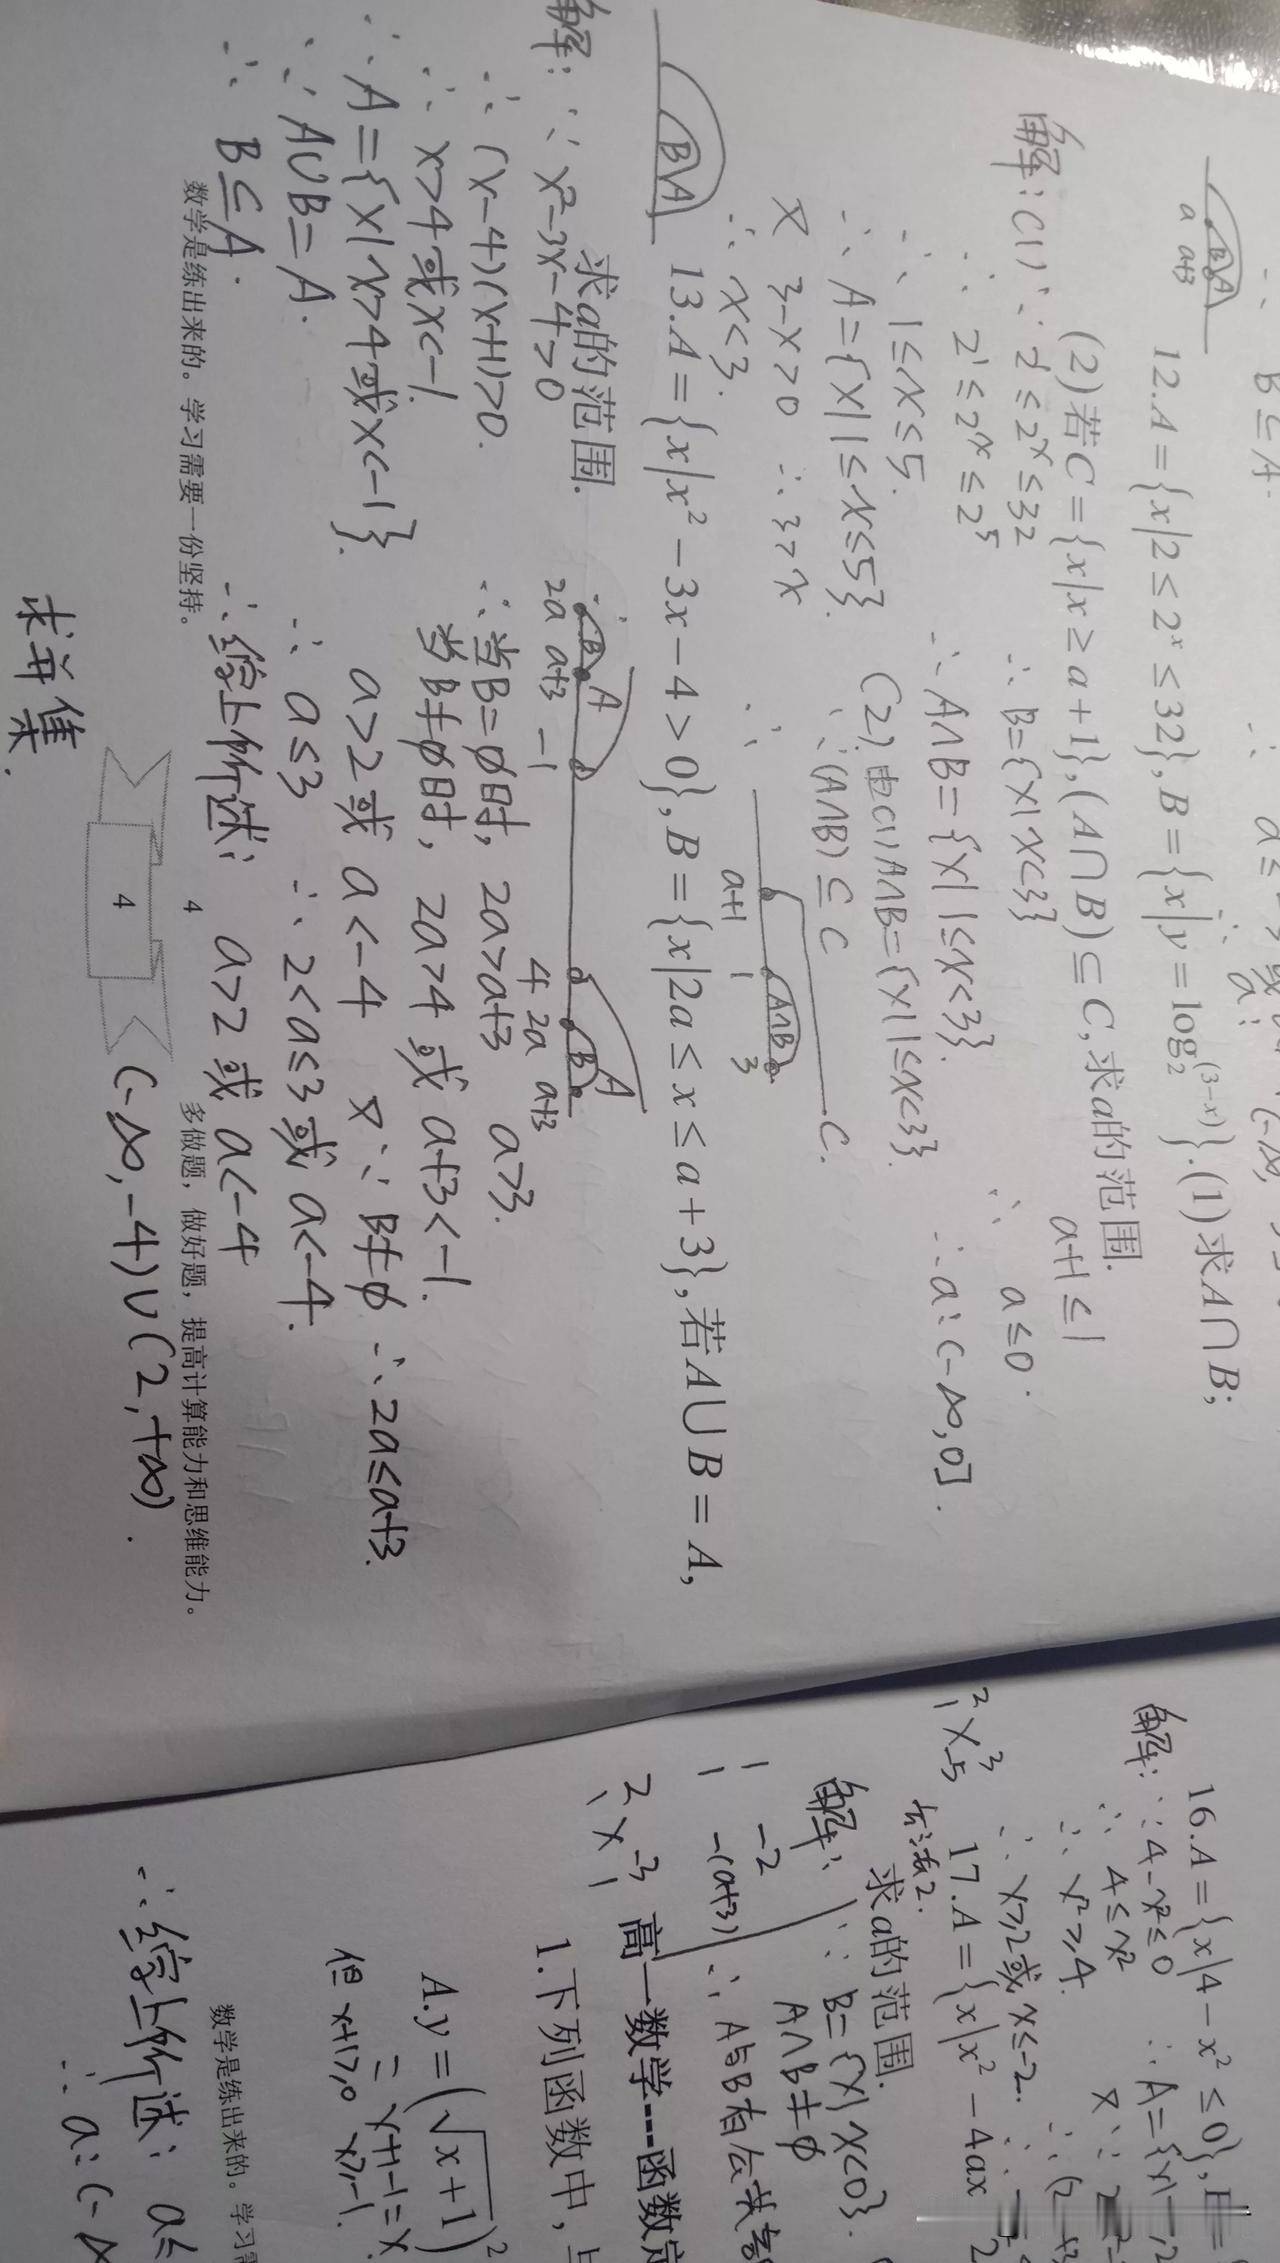 B⊆A.
a a+3
B A
12.A={x|2≤2ˣ≤32},B={x|y=log₂^(3-x)}.(1)求A∩B;
(2)若C={x|x≥a+1},(A∩B)⊆C,求a的范围.
解:(1)∵2≤2ˣ≤32
∴2¹≤2ˣ≤2⁵
∴1≤x≤5.
∴A={x|1≤x≤5}.
又 3-x>0 ∴3>x
∴x<3.
∴B={x|x<3}
∴A∩B={x|1≤x<3}.
(2)由(1)A∩B={x|1≤x<3}.
∵(A∩B)⊆C
A∩B
C.
a+1 1 3
a+1≤1
∴a≤0.
∴a:(-∞,0].
B A
13.A={x|x²-3x-4>0},B={x|2a≤x≤a+3},若A∪B=A,
求a的范围.
解:∵x²-3x-4>0
∴(x-4)(x+1)>0.
∴x>4或x<-1.
∴A={x|x>4或x<-1}.
∵A∪B=A.
∴B⊆A.
B A B A
2a a+3 -1 4 2a a+3
∴当B=∅时, 2a>a+3 a>3.
当B≠∅时, 2a>4 或 a+3<-1.
a>2或 a<-4 又∵B≠∅ ∴2a≤a+3.
∴a≤3 ∴2<a≤3或 a<-4.
∴综上所述: a>2 或 a<-4
(-∞,-4)∪(2,+∞).
数学是练出来的。学习需要一份坚持。
4
多做题，做好题，提高计算能力和思维能力。
4
求并集.
16.A={x|4-x²≤0},
解:∵4-x²≤0
∴4≤x²
∴x²≥4.
∴x≥2或x≤-2.
∴A={x|
17.A={x|x²-4ax
求a的范围.
方法2.
2 3
1 -5
解:∵B={x|x<0}.
A∩B≠∅
∴A与B有公共
1 -2
1 -(a+3)
2 -3
1 1
高一数学---函数定
1.下列函数中,与
A.y=(√(x+1))²
=x+1-1=x.
但x+1≥0 x≥-1.
数学是练出来的。学习需
∴综上所述: a≤
∴a:(-∞